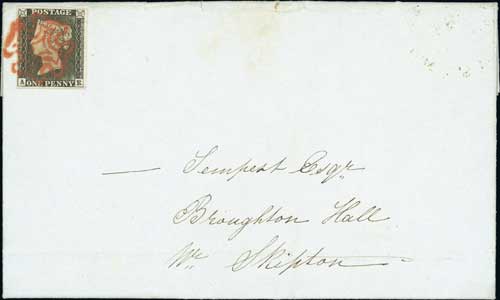 POSTAGE
A ONE PENNY E
— Tempest Esqr
Broughton Hall
Nr Skipton